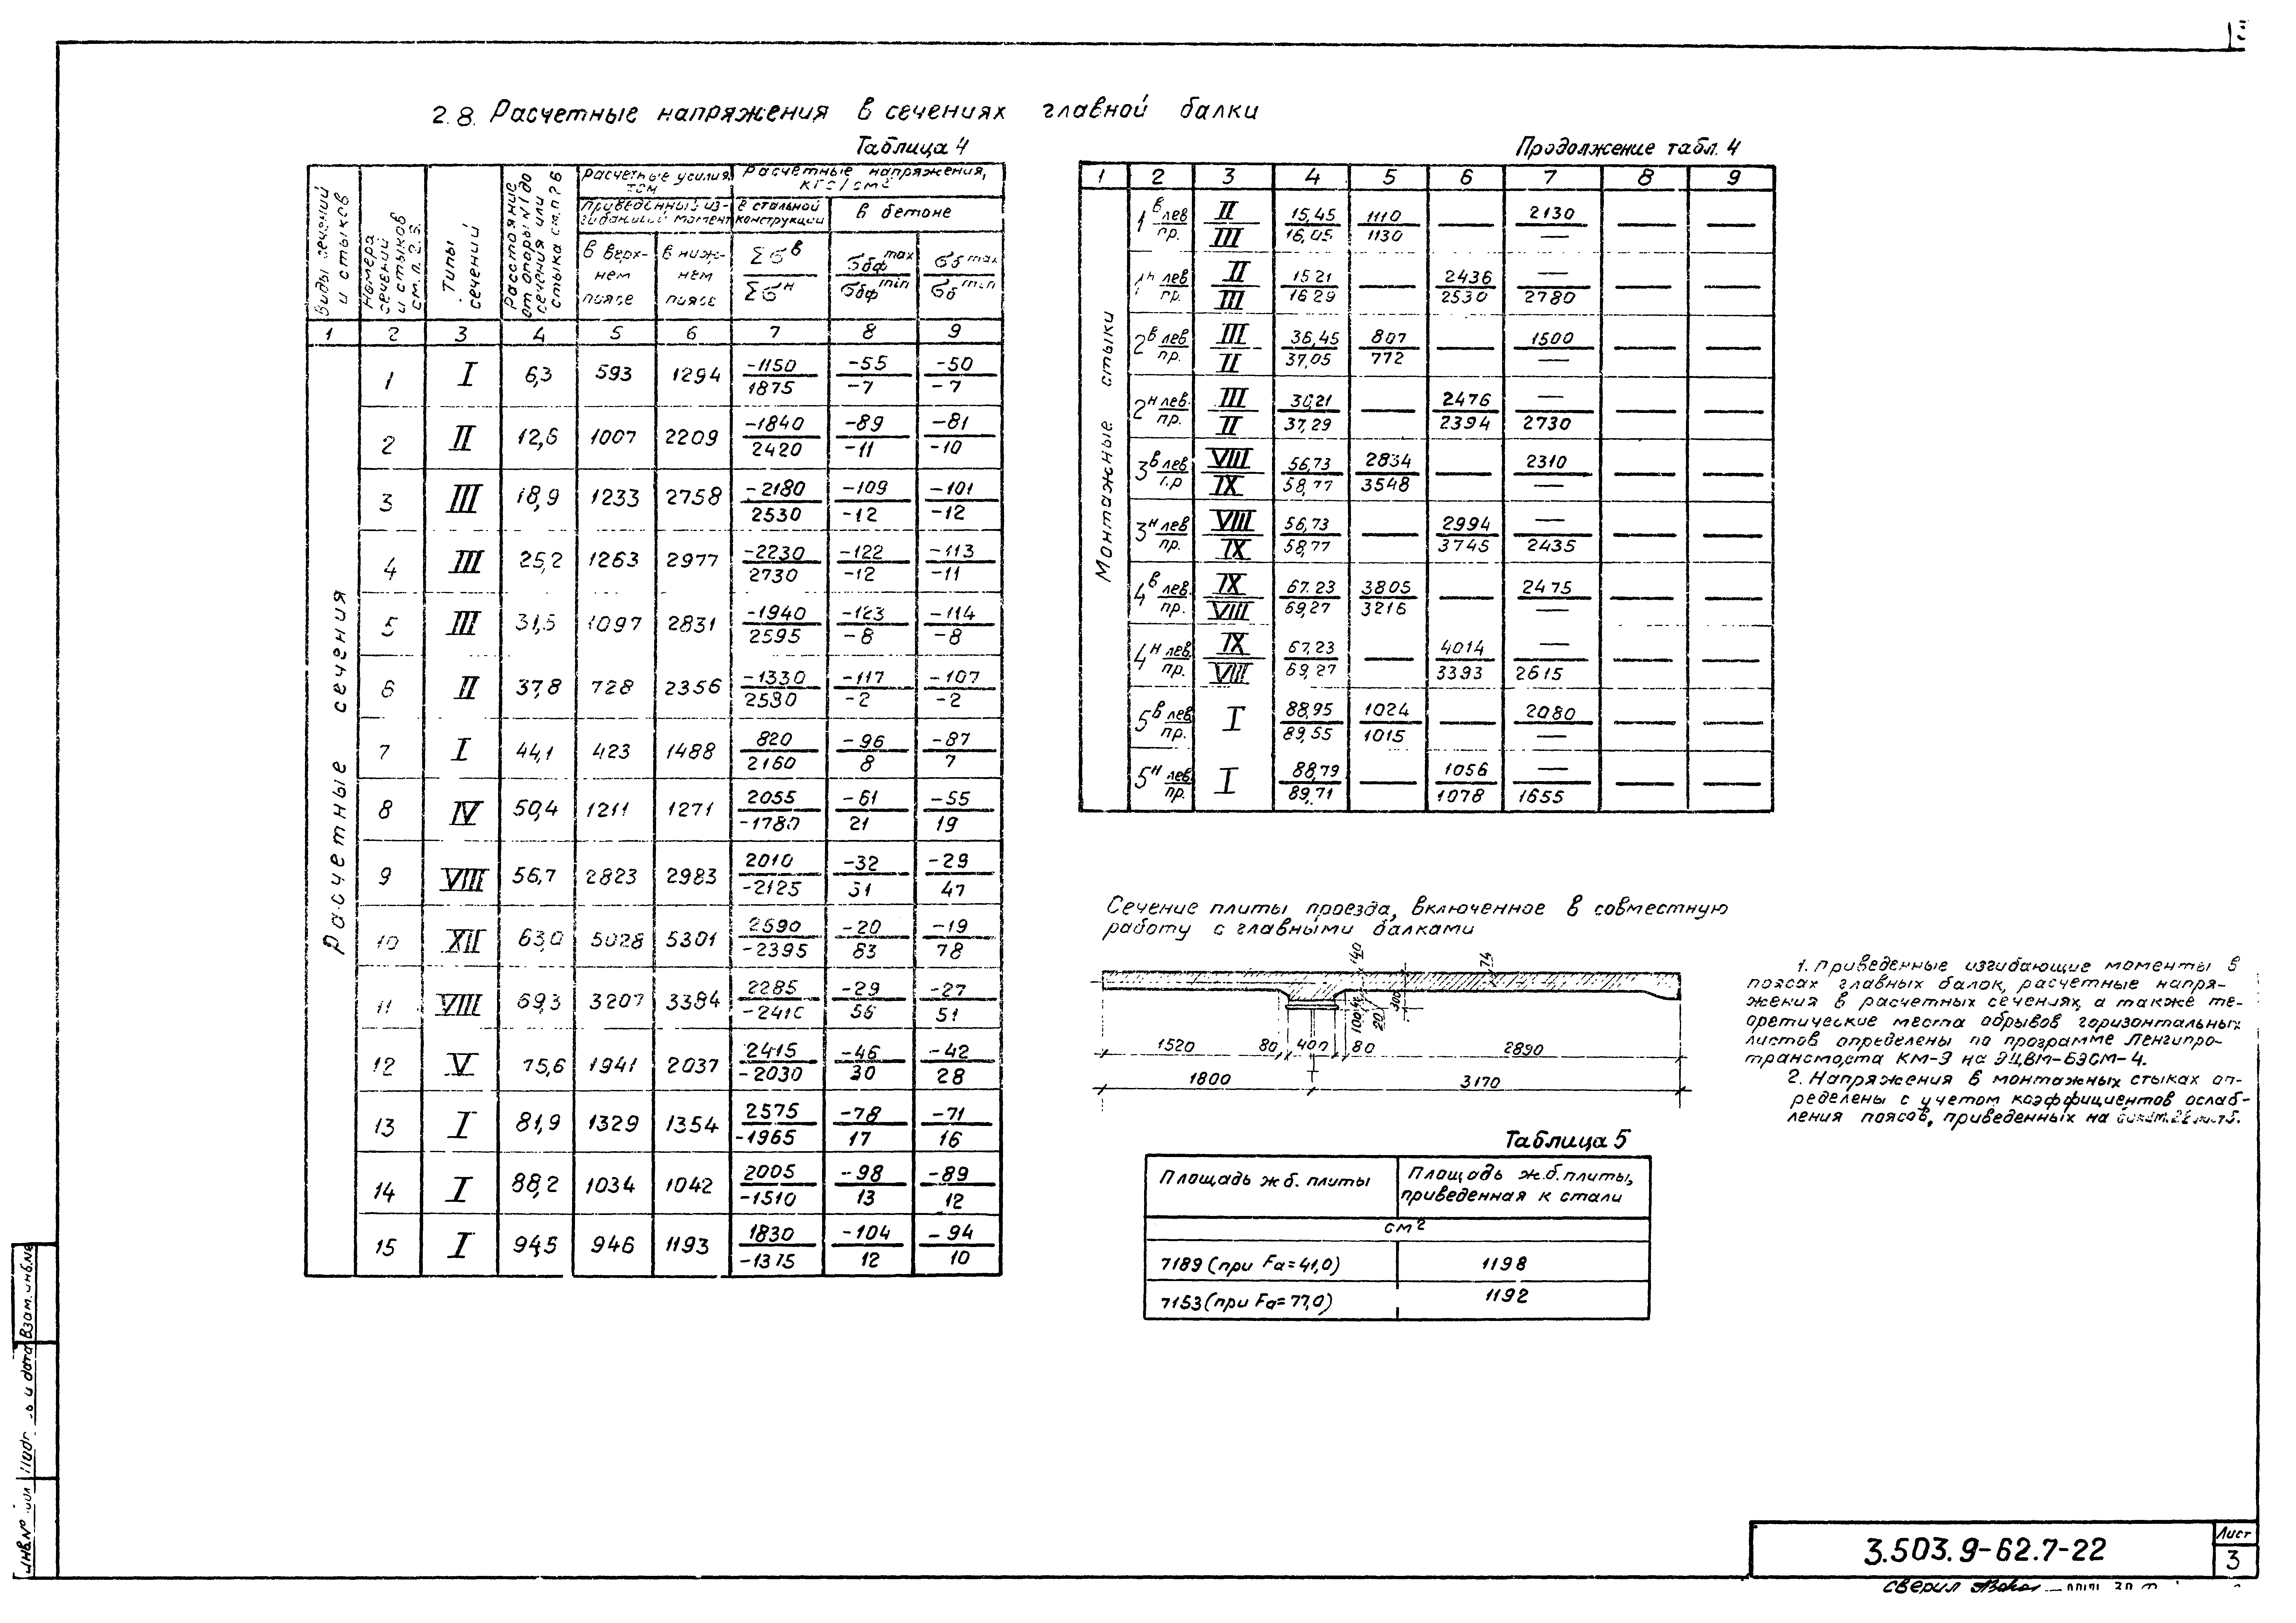 2.8. Расчетные напряжения в сечениях главной балки
Таблица 4
Виды сечений и стыков
Номера сечений и стыков см. п. 2.5.
Типы сечений
Расстояние от опоры №1 до сечения или стыка см. п. 2.6
Расчетные усилия, тсм
Расчетные напряжения, кгс/см2
Приведенный изгибающий момент
в стальной конструкции
в бетоне
в верхнем поясе
в нижнем поясе
Σσв / Σσн
σбф max / σбф min
σб max / σб min
1 2 3 4 5 6 7 8 9
Расчетные сечения
1 I 6,3 593 1294 -1150/1875 -55/-7 -50/-7
2 II 12,6 1007 2209 -1840/2420 -89/-11 -81/-10
3 III 18,9 1233 2758 -2180/2530 -109/-12 -101/-12
4 III 25,2 1263 2977 -2230/2730 -122/-12 -113/-11
5 III 31,5 1097 2831 -1940/2595 -123/-8 -114/-8
6 II 37,8 728 2356 -1330/2530 -117/-2 -107/-2
7 I 44,1 423 1488 820/2160 -96/8 -87/7
8 IV 50,4 1211 1271 2055/-1780 -61/21 -55/19
9 VIII 56,7 2823 2983 2010/-2125 -32/51 -29/47
10 XII 63,0 5028 5301 2590/-2395 -20/83 -19/78
11 VIII 69,3 3207 3384 2285/-2410 -29/56 -27/51
12 V 75,6 1941 2037 2415/-2030 -46/30 -42/28
13 I 81,9 1329 1354 2575/-1965 -78/17 -71/16
14 I 88,2 1034 1042 2005/-1510 -98/13 -89/12
15 I 94,5 946 1193 1830/-1375 -104/12 -94/10
Продолжение табл. 4
1 2 3 4 5 6 7 8 9
Монтажные стыки
1в лев/пр. II/III 15,45/16,05 1110/1130 — 2130/— — —
1н лев/пр. II/III 15,21/16,29 — 2436/2530 —/2780 — —
2в лев/пр. III/II 36,45/37,05 807/772 — 1500/— — —
2н лев./пр. III/II 36,21/37,29 — 2476/2394 —/2730 — —
3в лев/пр VIII/IX 56,73/58,77 2834/3548 — 2310/— — —
3н лев/пр. VIII/IX 56,73/58,77 — 2994/3745 —/2435 — —
4в лев./пр. IX/VIII 67,23/69,27 3805/3216 — 2475/— — —
4н лев./пр. IX/VIII 67,23/69,27 — 4014/3393 —/2615 — —
5в лев./пр. I 88,95/89,55 1024/1015 — 2080/— — —
5н лев./пр. I 88,79/89,71 — 1056/1078 —/1655 — —
Сечение плиты проезда, включенное в совместную
работу с главными балками
140 74
100 20
1520 80 400 80 2890
1800 3170
Таблица 5
Площадь ж.б. плиты
Площадь ж.б. плиты, приведенная к стали
см2
7189 (при Fа=41,0) 1198
7153 (при Fа=77,0) 1192
1. Приведенные изгибающие моменты в
поясах главных балок, расчетные напря-
жения в расчетных сечениях, а также те-
оретические места обрывов горизонтальных
листов определены по программе Ленгипро-
трансмоста КМ-9 на ЭЦВМ-БЭСМ-4.
2. Напряжения в монтажных стыках оп-
ределены с учетом коэффициентов ослаб-
ления поясов, приведенных на
3.503.9-62.7-22
Лист
3
сверил
Взам. инв.№
и дата
Инв.№